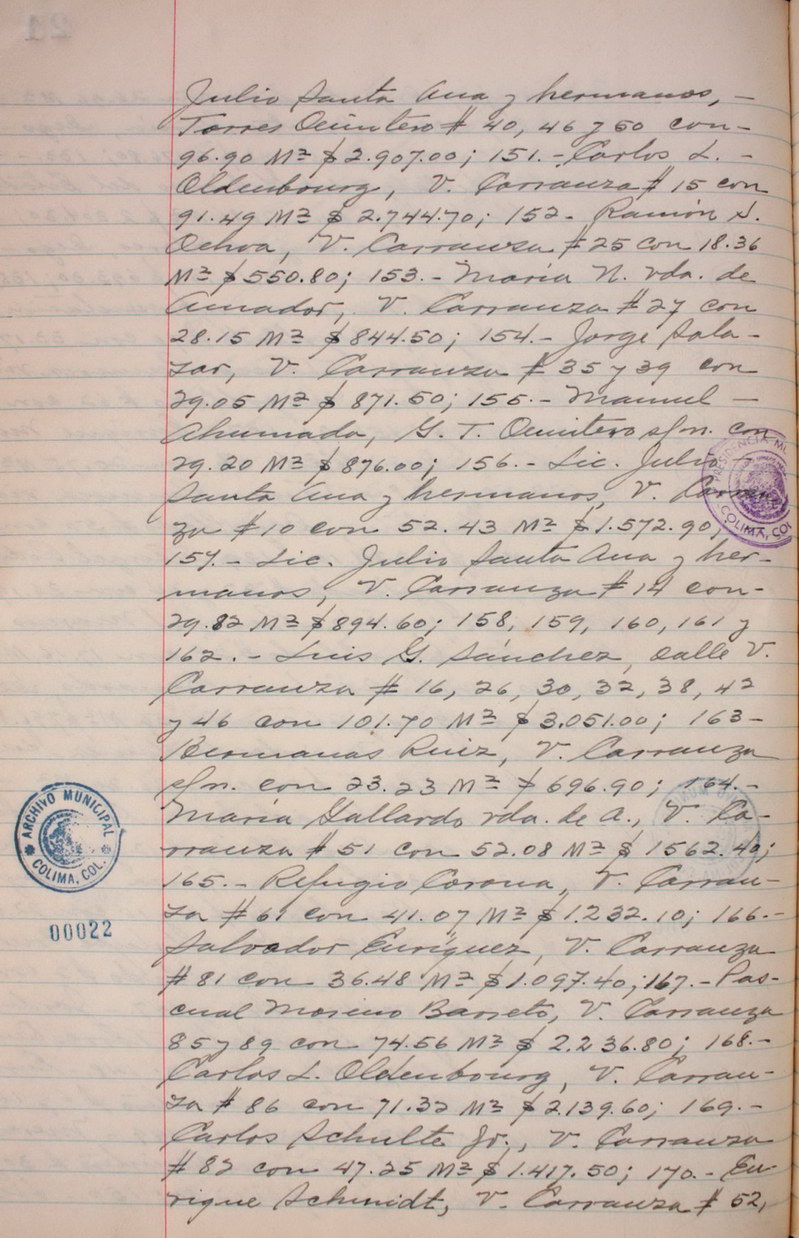 Julio Santa Ana y hermanos, -
Torres Quintero # 40, 46 y 50 con-
96.90 M² $ 2.907.00; 151.- Carlos L. -
Oldenbourg, V. Carranza # 15 con
91.49 M² $ 2.744.70; 152- Ramón S.
Ochoa, V. Carranza # 25 con 18.36
M² $ 550.80; 153.- María N. vda. de
Amador, V. Carranza # 27 con
28.15 M² $ 844.50; 154.- Jorge Sala-
zar, V. Carranza # 35 y 39 con
29.05 M² $ 871.50; 155.- Manuel -
Ahumada, G. T. Quintero s/n. con
29.20 M² $ 876.00; 156.- Lic. Julio
Santa Ana y hermanos, V. Carran-
za # 10 con 52.43 M² $ 1.572.90;
157.- Lic. Julio Santa Ana y her-
manos, V. Carranza # 14 con-
29.82 M² $ 894.60; 158, 159, 160, 161 y
162.- Luis G. Sánchez, calle V.
Carranza # 16, 26, 30, 32, 38, 42
y 46 con 101.70 M² $ 3.051.00; 163-
Hermanas Ruiz, V. Carranza
s/n. con 23.23 M² $ 696.90; 164.-
María Gallardo vda. de A., V. Ca-
rranza # 51 con 52.08 M² $ 1562.40;
165.- Refugio Corona, V. Carran-
za # 61 con 41.07 M² $ 1.232.10; 166.-
Salvador Enríquez, V. Carranza
# 81 con 36.48 M² $ 1.097.40; 167.- Pas-
cual Moreno Barreto, V. Carranza
85 y 89 con 74.56 M² $ 2.236.80; 168.-
Carlos L. Oldenbourg, V. Carran-
za # 86 con 71.32 M² $ 2.139.60; 169.-
Carlos Schulte Jr., V. Carranza
# 82 con 47.25 M² $ 1.417.50; 170.- En-
rique Schmidt, V. Carranza # 52,
PRESIDENCIA MU
COLIMA, CO
ARCHIVO MUNICIPAL
COLIMA, COL.
00022